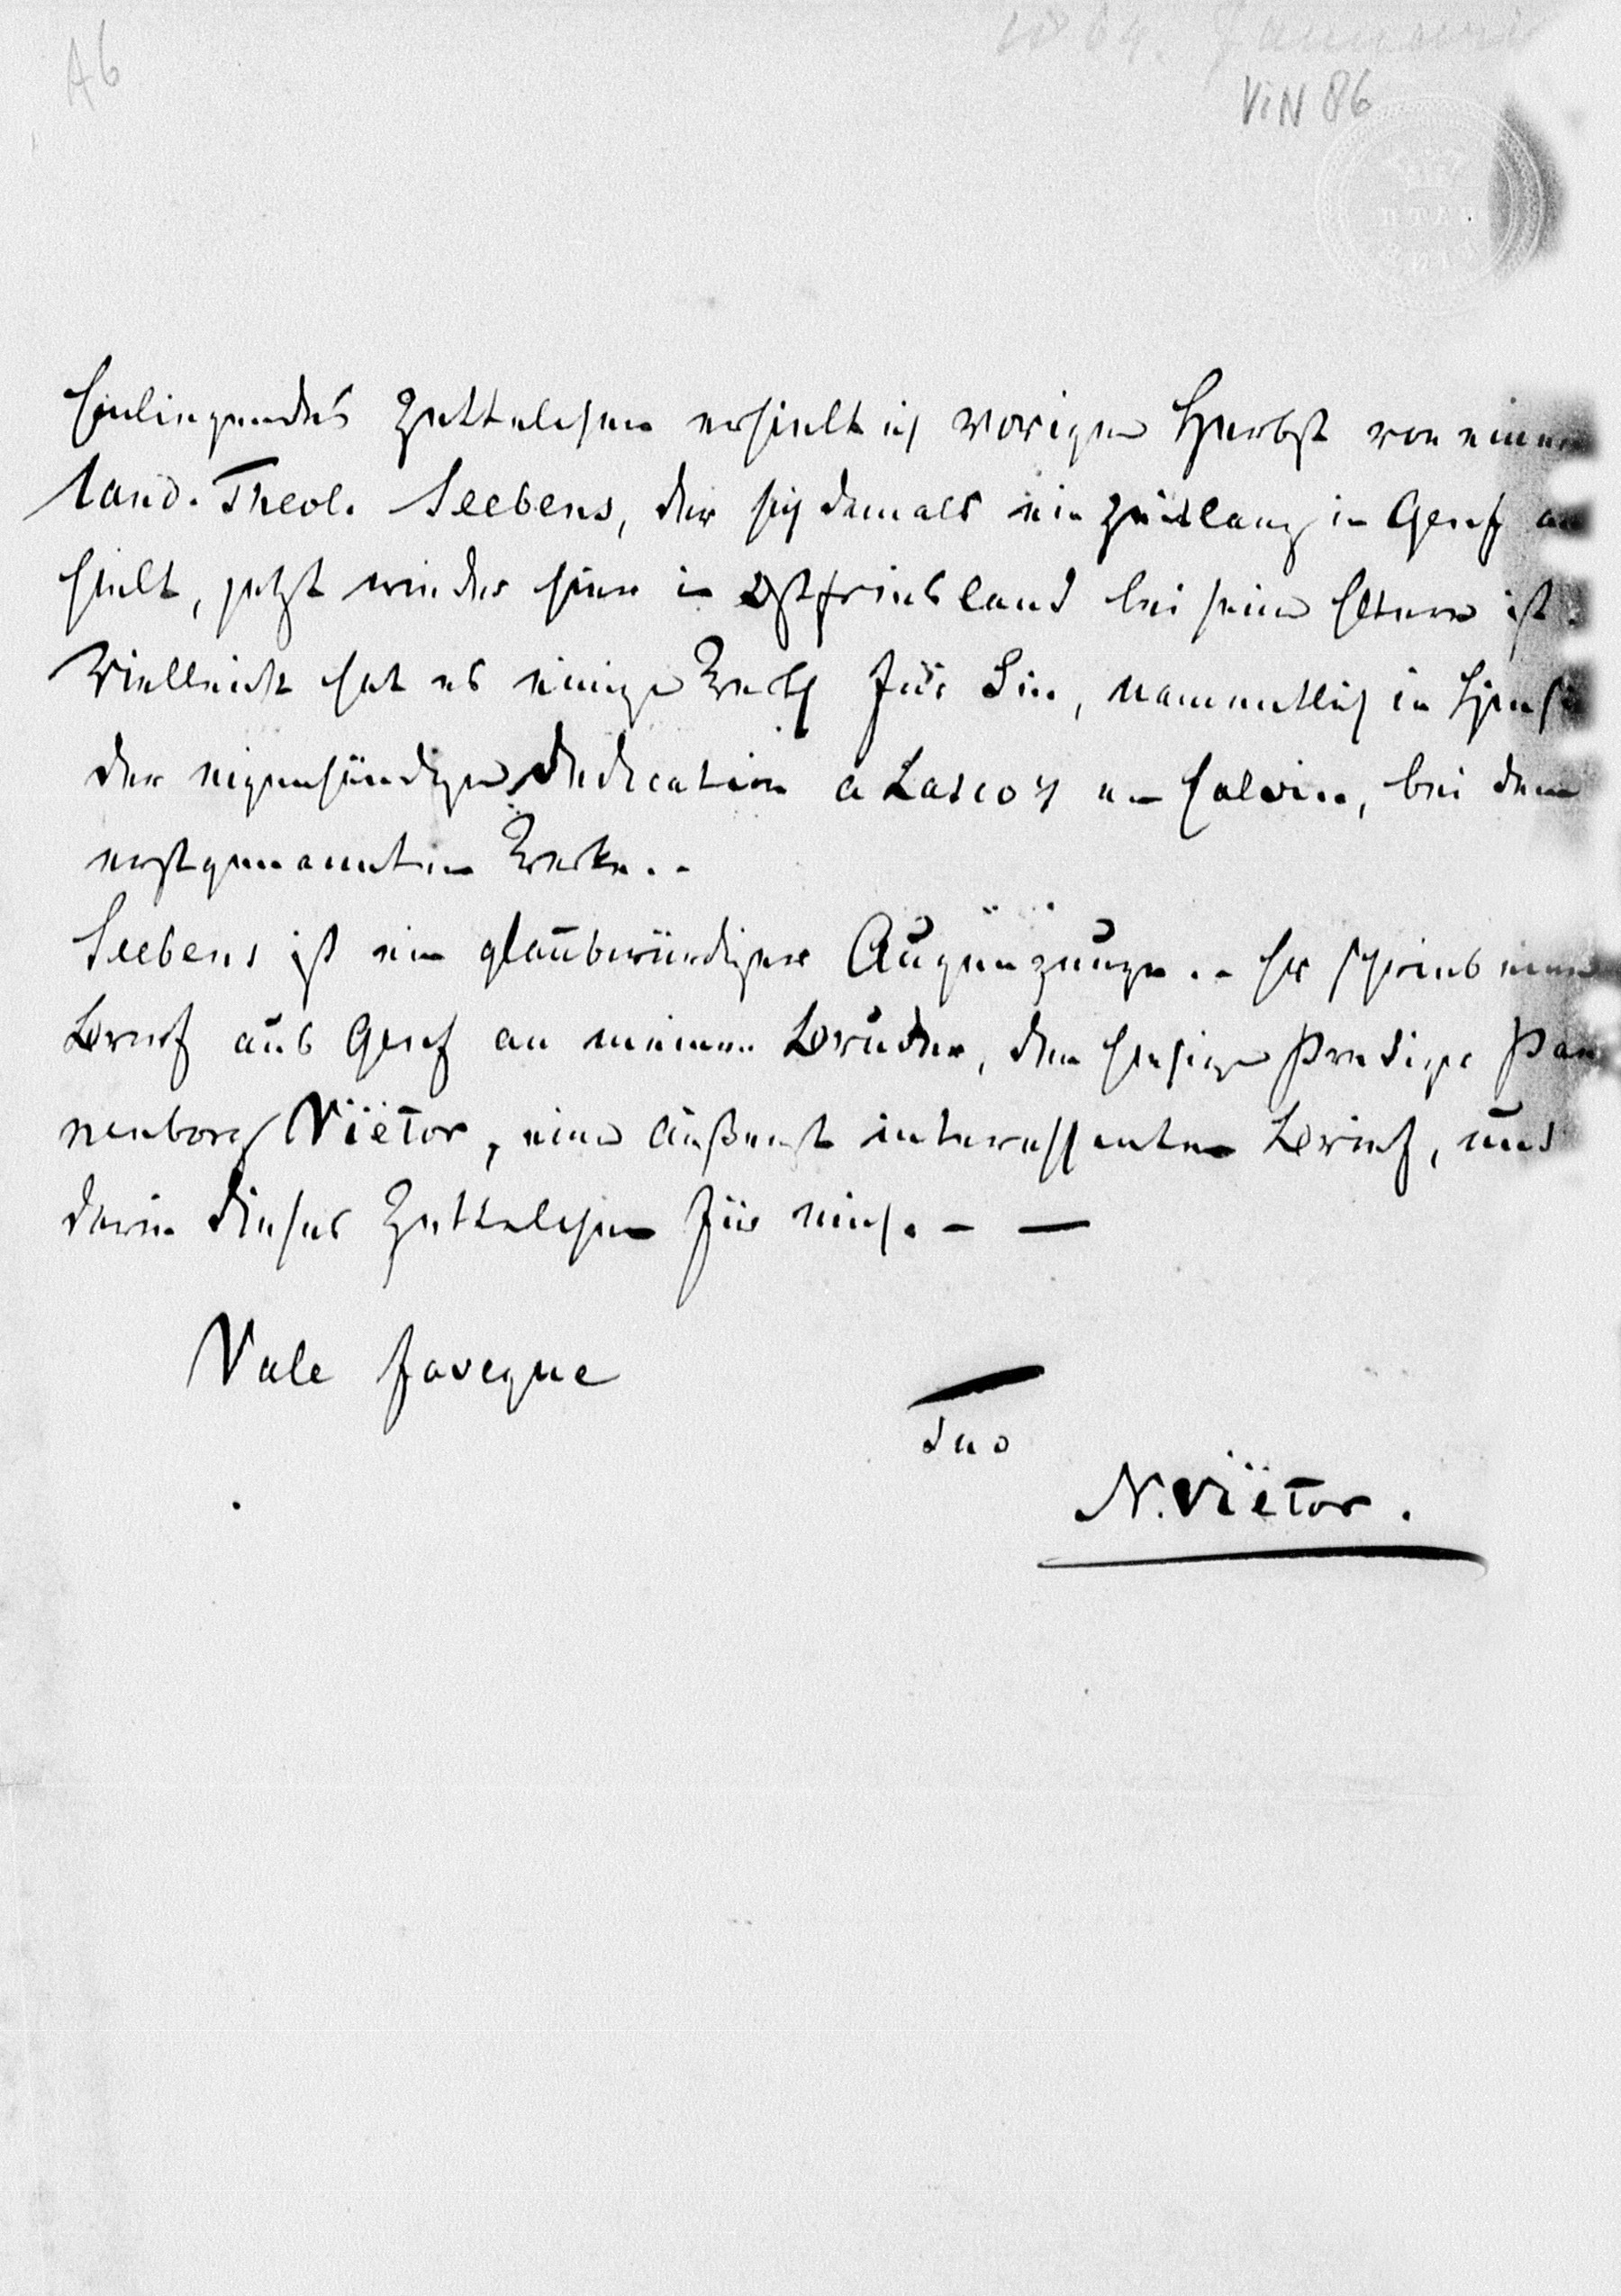 A6
1864. Januar
ViN 86
Einliegendes Zettelchen erhielt ich vorigen Herbst von einem
Cand. Theol. Seebens, der sich damals ein Zeitlang in Genf auf
hielt, jetzt wieder hier in Ostfriesland bei sein Eltern ist.
Vielleicht hat es einigen Werth für Sie, namentlich in Hinsicht
der eigenhändigen Dedication a Lasco's an Calvin, bei dem
erstgenannten Werke. -
Seebens ist ein glaubwürdiger Augenzeuge. - Er schrieb einen
Brief aus Genf an meinen Bruder, den hiesigen Prediger Pan
nenborg Viëtor, einen äußerst interessanten Brief, und
darin dieses Zettelchen für mich. - —
Vale faveque
Tuo
N. Viëtor.